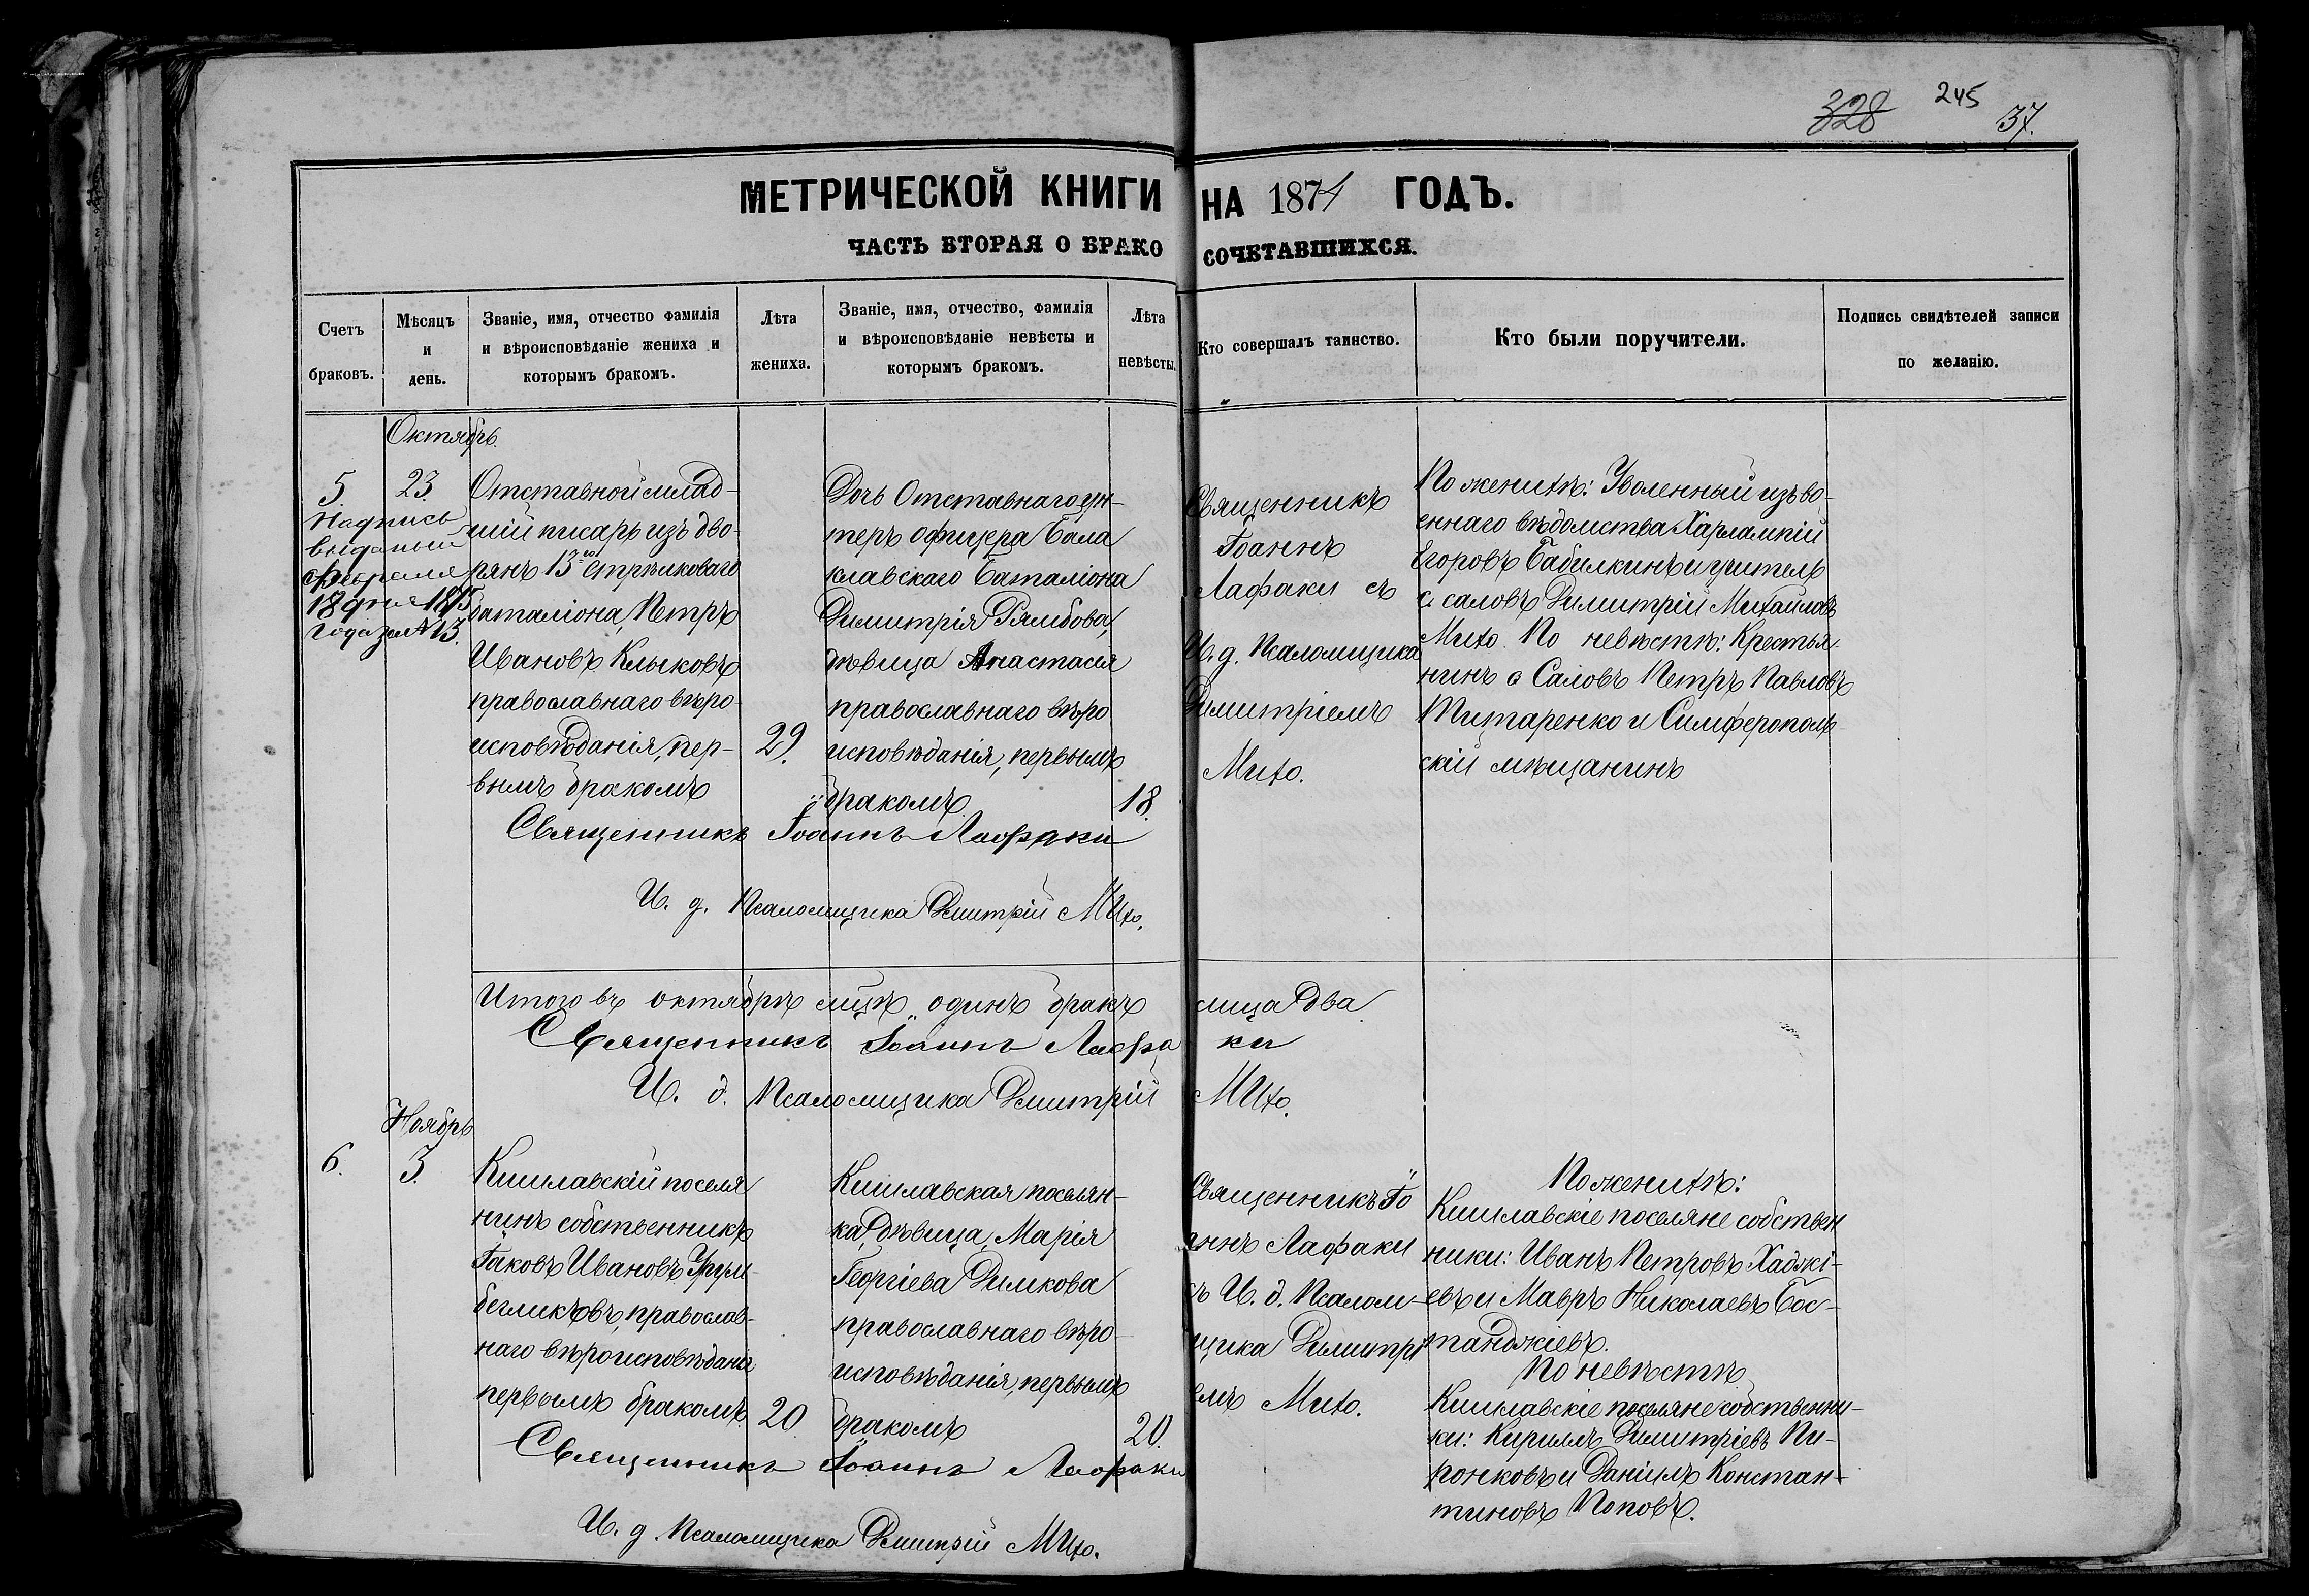 328 245 37.
МЕТРИЧЕСКОЙ КНИГИ НА 1874 ГОДЪ.
ЧАСТЬ ВТОРАЯ О БРАКО СОЧЕТАВШИХСЯ.
Счетъ
браковъ.
Мѣсяцъ
и
день.
Званіе, имя, отчество фамилія
и вѣроисповѣданіе жениха и
которымъ бракомъ.
Лѣта
жениха.
Званіе, имя, отчество, фамилія
и вѣроисповѣданіе невѣсты и
которымъ бракомъ.
Лѣта
невѣсты.
Кто совершалъ таинство.
Кто были поручители.
Подпись свидѣтелей записи
по желанію.
Октябрь.
5.
Надпись
выданый
февраля
18 дня 1875
года за №13.
23.
Отставной млад-
шій писарь изъ дво-
рянъ 13го стрѣлковаго
баталіона, Петръ
Ивановъ Клыковъ
православнаго вѣро-
исповѣданія, пер-
вымъ бракомъ
29.
Дочь Отставнаго ун-
теръ офицера Бала
клавскаго баталіона
Димитрія Дямбова,
дѣвица Анастасія
православнаго вѣро
исповѣданія, первымъ
бракомъ.
18.
Священникъ
Іоаннъ
Лафаки съ
И. д. Псаломщика
Димитріемъ
Михо.
По женихѣ: Уволенный изъ во-
еннаго вѣдомства Харлампій
Егоровъ Бабилкинъ и учитель
с. саловъ Димитрій Михайловъ
Михо. По невѣстѣ: Крестья-
нинъ с Саловъ Петръ Павловъ
Титаренко и Симферополь-
скій мѣщанинъ
Священникъ Іоаннъ Лафаки
И. д. Псаломщика Дмитрій Михо.
Итого въ октябрѣ мцѣ „одинъ бракъ лица два
Священникъ Іоаннъ Лафа ки
И. д. Псаломщика Дмитрій Михо.
Ноябрь
6.
3.
Кишлавскій поселя
нинъ собственникъ
Іаковъ Ивановъ Урум-
бегликовъ, православ-
наго вѣроисповѣданія
первымъ бракомъ.
20
Кишлавская поселян-
ка, дѣвица, Марія
Георгіева Димкова
православнаго вѣро-
исповѣданія, первымъ
бракомъ
20.
Священникъ Іо
аннъ Лафаки
съ И. д. Псалом-
щика Димитрі
емъ Михо.
По женихѣ:
Кишлавскіе поселяне собствен
ники: Иванъ Петровъ Хаджі-
евъ и Мавръ Николаевъ Бос-
танджіевъ.
По невѣстѣ
Кишлавскіе поселяне собственни-
ки: Кириллъ Димитріевъ Пи-
ронковъ и Даніилъ Констан-
тиновъ Поповъ.
Священникъ Іоаннъ Лафаки
И. д. Псаломщика Дмитрій Михо.